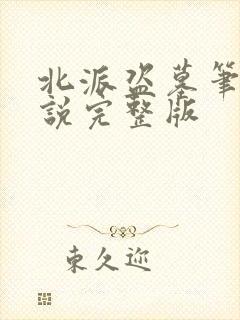 北派盗墓笔
說完整版
東久迩